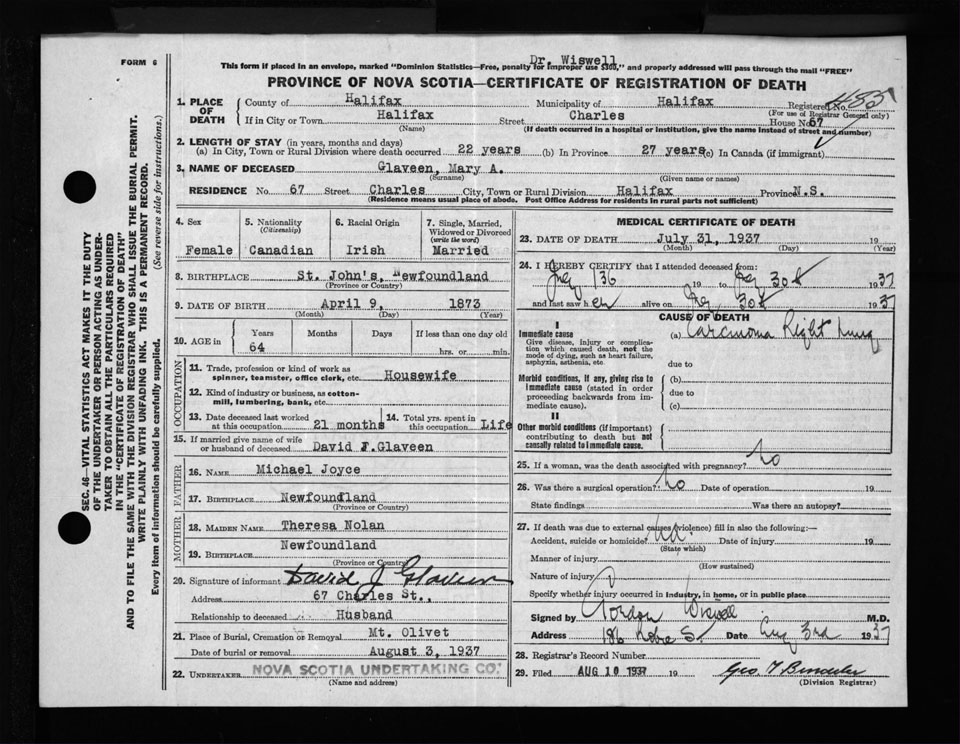 FORM 6
Dr. Wiswell
This form if placed in an envelope, marked "Dominion Statistics—Free, penalty for improper use $300," and properly addressed will pass through the mail "FREE"
PROVINCE OF NOVA SCOTIA—CERTIFICATE OF REGISTRATION OF DEATH
1. PLACE OF DEATH County of Halifax Municipality of Halifax Registered No.
(For use of Registrar General only)
If in City or Town Halifax Street Charles House No 67
(Name) (If death occurred in a hospital or institution, give the name instead of street and number)
2. LENGTH OF STAY (in years, months and days)
(a) In City, Town or Rural Division where death occurred 22 years (b) In Province 27 years (c) In Canada (if immigrant)
3. NAME OF DECEASED Glaveen, Mary A.
(Surname) (Given name or names)
RESIDENCE No. 67 Street Charles City, Town or Rural Division Halifax Province N.S.
(Residence means usual place of abode. Post Office Address for residents in rural parts not sufficient)
4. Sex Female
5. Nationality (Citizenship) Canadian
6. Racial Origin Irish
7. Single, Married, Widowed or Divorced (write the word) Married
8. BIRTHPLACE St. John's, Newfoundland
(Province or Country)
9. DATE OF BIRTH April 9, 1873
(Month) (Day) (Year)
10. AGE in Years Months Days If less than one day old
64 hrs. or min.
OCCUPATION
11. Trade, profession or kind of work as spinner, teamster, office clerk, etc. Housewife
12. Kind of industry or business, as cotton-mill, lumbering, bank, etc.
13. Date deceased last worked at this occupation 21 months
14. Total yrs. spent in this occupation Life
15. If married give name of wife or husband of deceased David F.Glaveen
FATHER
16. NAME Michael Joyce
17. BIRTHPLACE Newfoundland
(Province or Country)
MOTHER
18. MAIDEN NAME Theresa Nolan
19. BIRTHPLACE Newfoundland
(Province or Country)
20. Signature of informant David J Glaveen
Address 67 Charles St.,
Relationship to deceased Husband
21. Place of Burial, Cremation or Removal Mt. Olivet
Date of burial or removal August 3, 1937
22. UNDERTAKER NOVA SCOTIA UNDERTAKING CO.
(Name and address)
MEDICAL CERTIFICATE OF DEATH
23. DATE OF DEATH July 31, 1937 19
(Month) (Day) (Year)
24. I HEREBY CERTIFY that I attended deceased from:
19 to 30th 1937
and last saw her alive on 30th 1937
CAUSE OF DEATH
I
Immediate cause (a) Carcinoma Right Lung
Give disease, injury or complication which caused death, not the mode of dying, such as heart failure, asphyxia, asthenia, etc.
due to
Morbid conditions, if any, giving rise to immediate cause (stated in order proceeding backwards from immediate cause).
(b)
due to
(c)
II
Other morbid conditions (if important) contributing to death but not causally related to immediate cause.
25. If a woman, was the death associated with pregnancy? No
26. Was there a surgical operation? No Date of operation 19
State findings Was there an autopsy?
27. If death was due to external causes (violence) fill in also the following:—
Accident, suicide or homicide? Date of injury 19
(State which)
Manner of injury
(How sustained)
Nature of injury
Specify whether injury occurred in industry, in home, or in public place
Signed by Gordon Wiswell M.D.
Address 186 Robie St Date Aug 3rd 1937
28. Registrar's Record Number
29. Filed AUG 10 1937 19
(Division Registrar)
SEC. 46—VITAL STATISTICS ACT MAKES IT THE DUTY
OF THE UNDERTAKER OR PERSON ACTING AS UNDER-
TAKER TO OBTAIN ALL THE PARTICULARS REQUIRED
IN THE "CERTIFICATE OF REGISTRATION OF DEATH"
AND TO FILE THE SAME WITH THE DIVISION REGISTRAR WHO SHALL ISSUE THE BURIAL PERMIT.
WRITE PLAINLY WITH UNFADING INK. THIS IS A PERMANENT RECORD.
Every item of information should be carefully supplied. (See reverse side for instructions.)